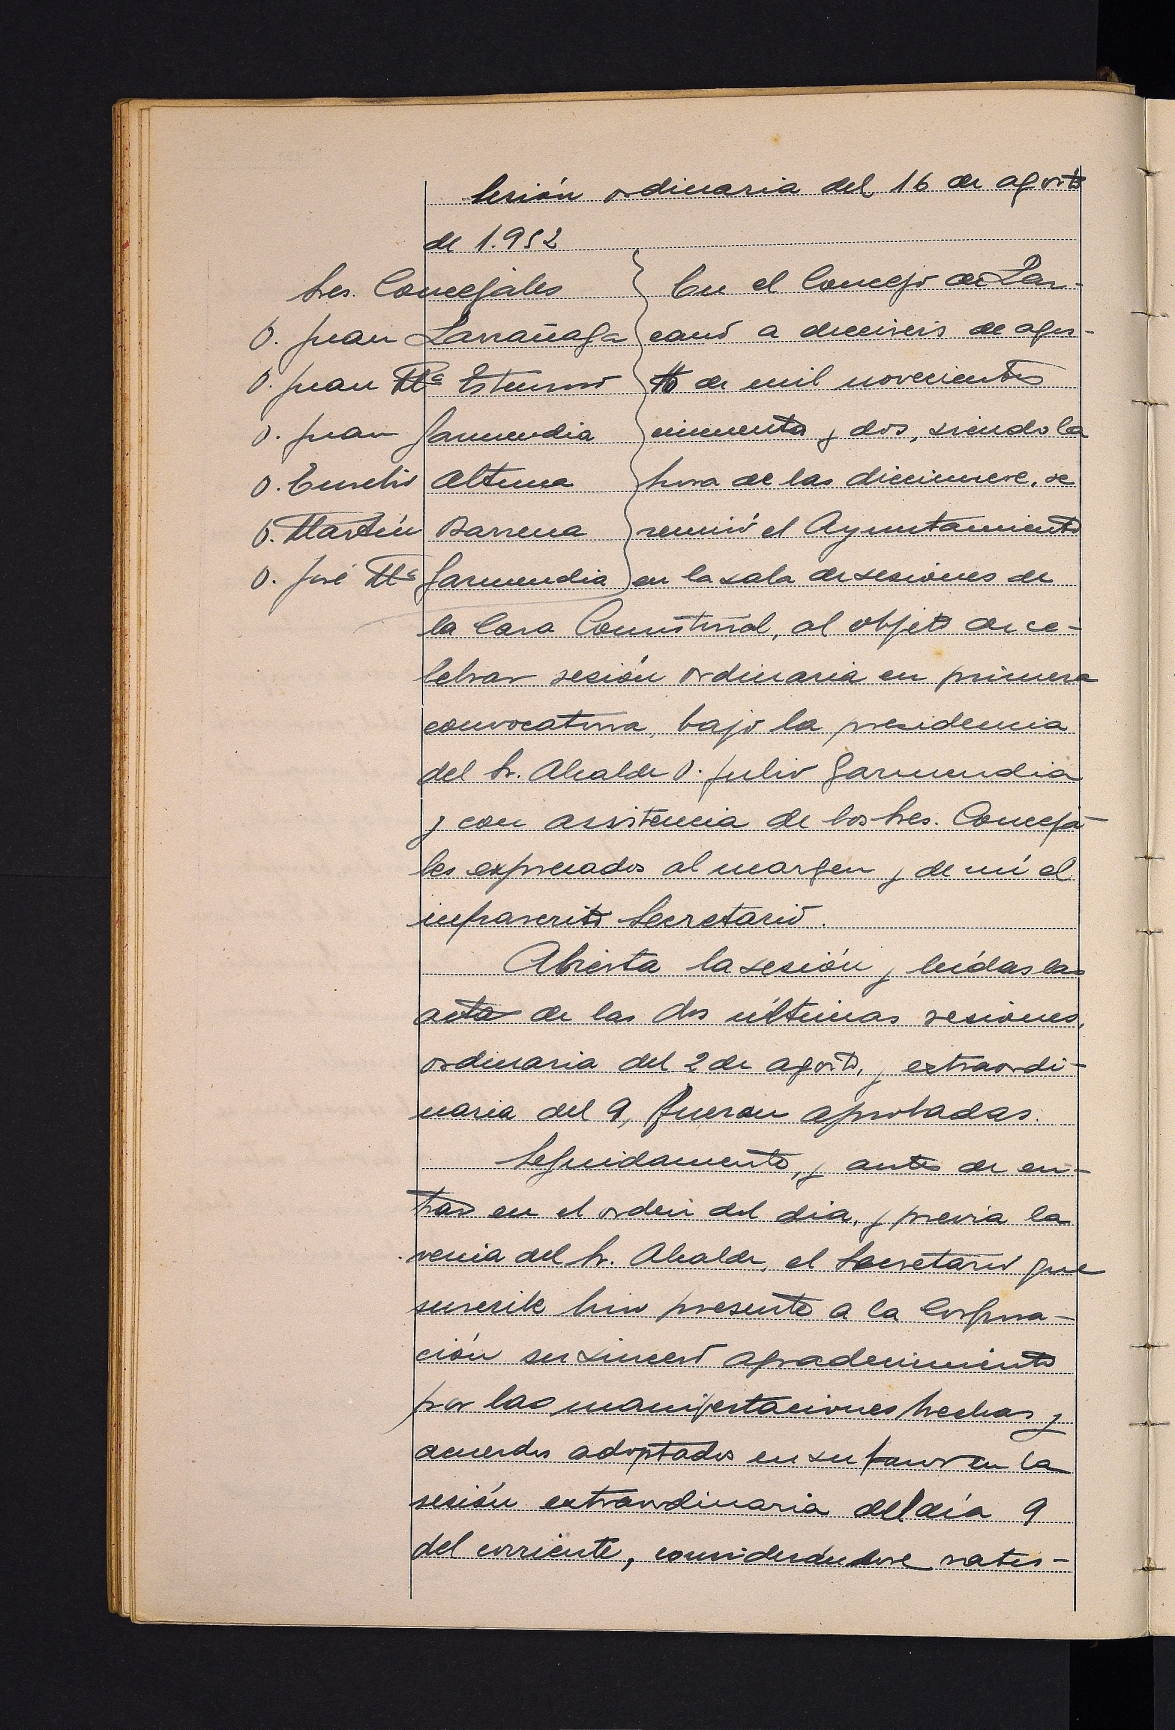 Sesión ordinaria del 16 de agosto
de 1.952
Sres. Concejales
D. Juan Larrañaga
D. Juan Mª Estensoro
D. Juan Garmendia
D. Eusebio Altuna
D. Martín Barrena
D. José Mª Garmendia
En el Concejo de Laz-
cano a dieciseis de agos-
to de mil novecientos
cincuenta y dos, siendo la
hora de las diecinueve, se
reunió el Ayuntamiento
en la sala de sesiones de
la Casa Consistorial, al objeto de ce-
lebrar sesión ordinaria en primera
convocatoria, bajo la presidencia
del Sr. Alcalde D. Julio Garmendia
y con asistencia de los Sres. Conceja-
les expresados al margen y de mí el
infrascrito Secretario.
Abierta la sesión y leídas las
acta de las dos últimas sesiones,
ordinaria del 2 de agosto, y extraordi-
naria del 9, fueron aprobadas.
Seguidamente, y antes de en-
trar en el orden del dia, y previa la
venia del Sr. Alcalde, el Secretario que
suscribe hizo presente a la Corpora-
ción su sincero agradecimiento
por las manifestaciones hechas y
acuerdos adoptados en su favor en la
sesión extraordinaria del día 9
del corriente, considerándose satis-